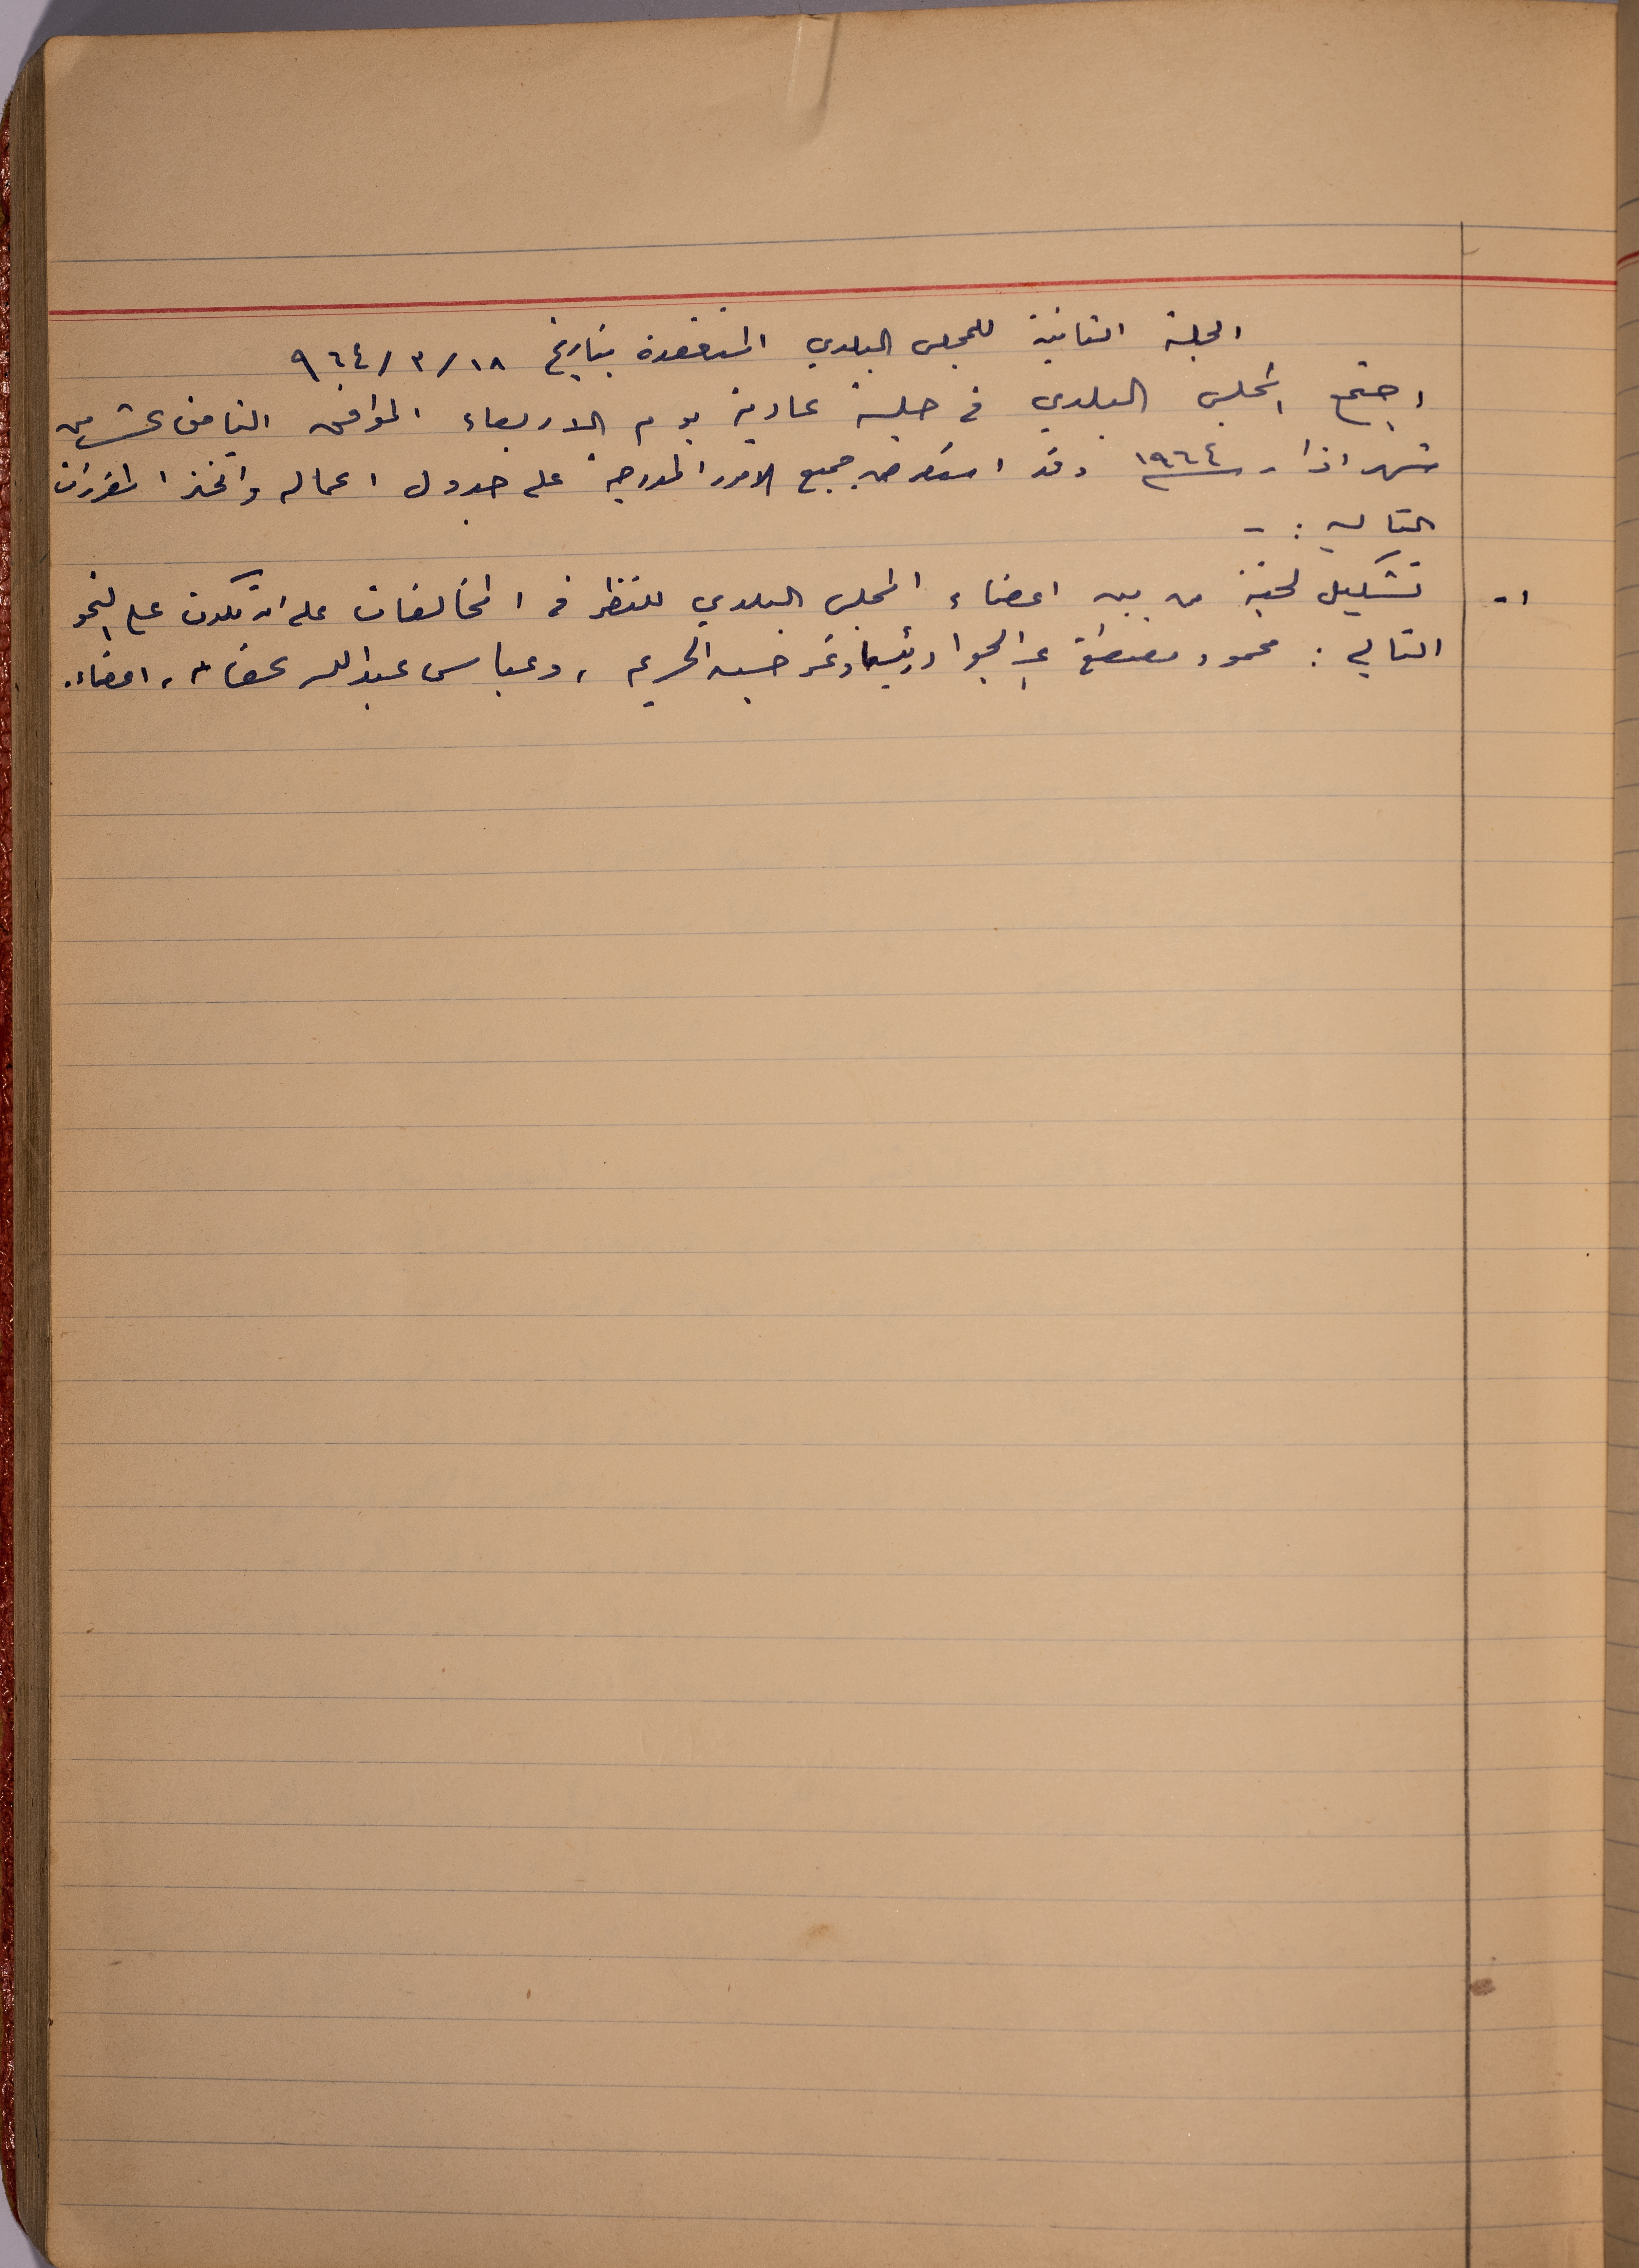 الجلسة الثانية للمجلس البلدي المنعقدة بتاريخ ١٨/٣/٩٦٤
اجتمع المجلس البلدي في جلسة عادية يوم الاربعاء الموافق الثامن عشر من
شهر اذار سنة ١٩٦٤ وقد استعرض جميع الامور المدرجة على جدول اعماله واتخذ المقررات
التالية :-
١- تشكيل لجنة من بين اعضاء المجلس البلدي للنظر في المخالفات على ان تكون على النحو
التالي : محمود مصطفى عبد الجواد رئيسا وعمر حسين الحريم ، وعباس عبد الله ، اعضاء.